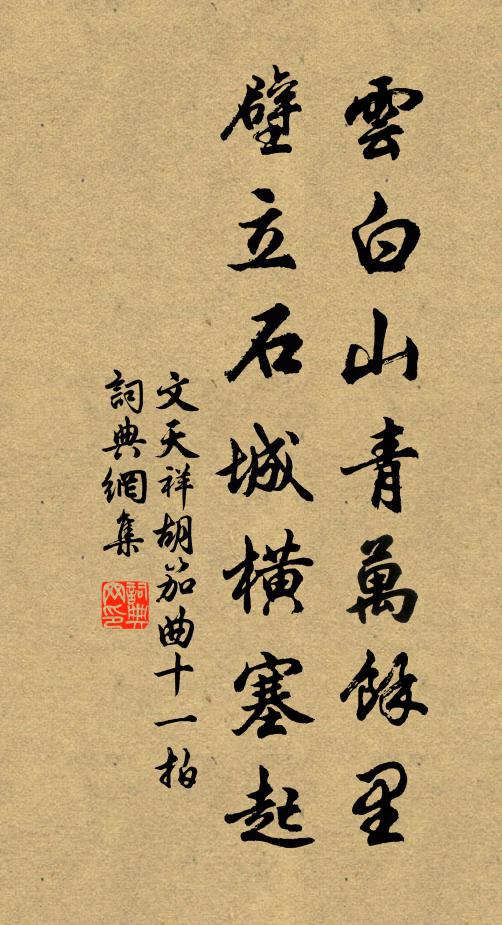 雲白山青萬餘里
壁立石城橫塞起
文天祥胡笳曲十一拍
詞典網集
詞典網印